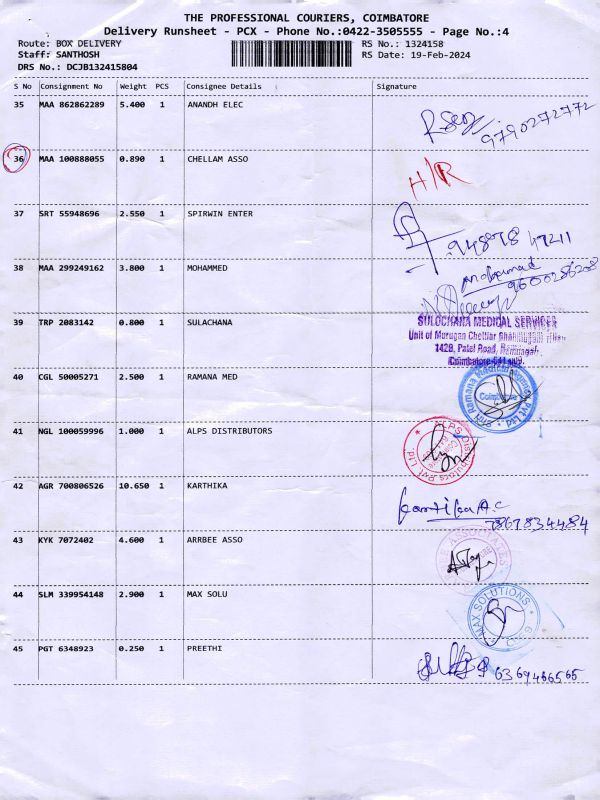 THE PROFESSIONAL COURIERS, COIMBATORE
Delivery Runsheet - PCX - Phone No.:0422-3505555 - Page No.:4
Route: BOX DELIVERY RS No.: 1324158
Staff: SANTHOSH RS Date: 19-Feb-2024
DRS No.: DCJB132415804
S No Consignment No Weight PCS Consignee Details Signature
35 MAA 862862289 5.400 1 ANANDH ELEC
9790272772
36 MAA 100888055 0.890 1 CHELLAM ASSO H/R
37 SRT 55948696 2.550 1 SPIRWIN ENTER
94878 47211
38 MAA 299249162 3.800 1 MOHAMMED mohammad
9600286208
39 TRP 2083142 0.800 1 SULACHANA SULOCHANA MEDICAL SERVICES
Unit of Murugan Chettiar
142B, Patel Road, Ramnagar,
Coimbatore
40 CGL 50005271 2.500 1 RAMANA MED Ramana Medical Pvt Ltd
Coimbatore
41 NGL 100059996 1.000 1 ALPS DISTRIBUTORS ALPS Distributors Pvt Ltd
42 AGR 700806526 10.650 1 KARTHIKA kartika A.C
7867834484
43 KYK 7072402 4.600 1 ARRBEE ASSO ASSOCIATES
44 SLM 339954148 2.900 1 MAX SOLU MAX SOLUTIONS
45 PGT 6348923 0.250 1 PREETHI 6369466565